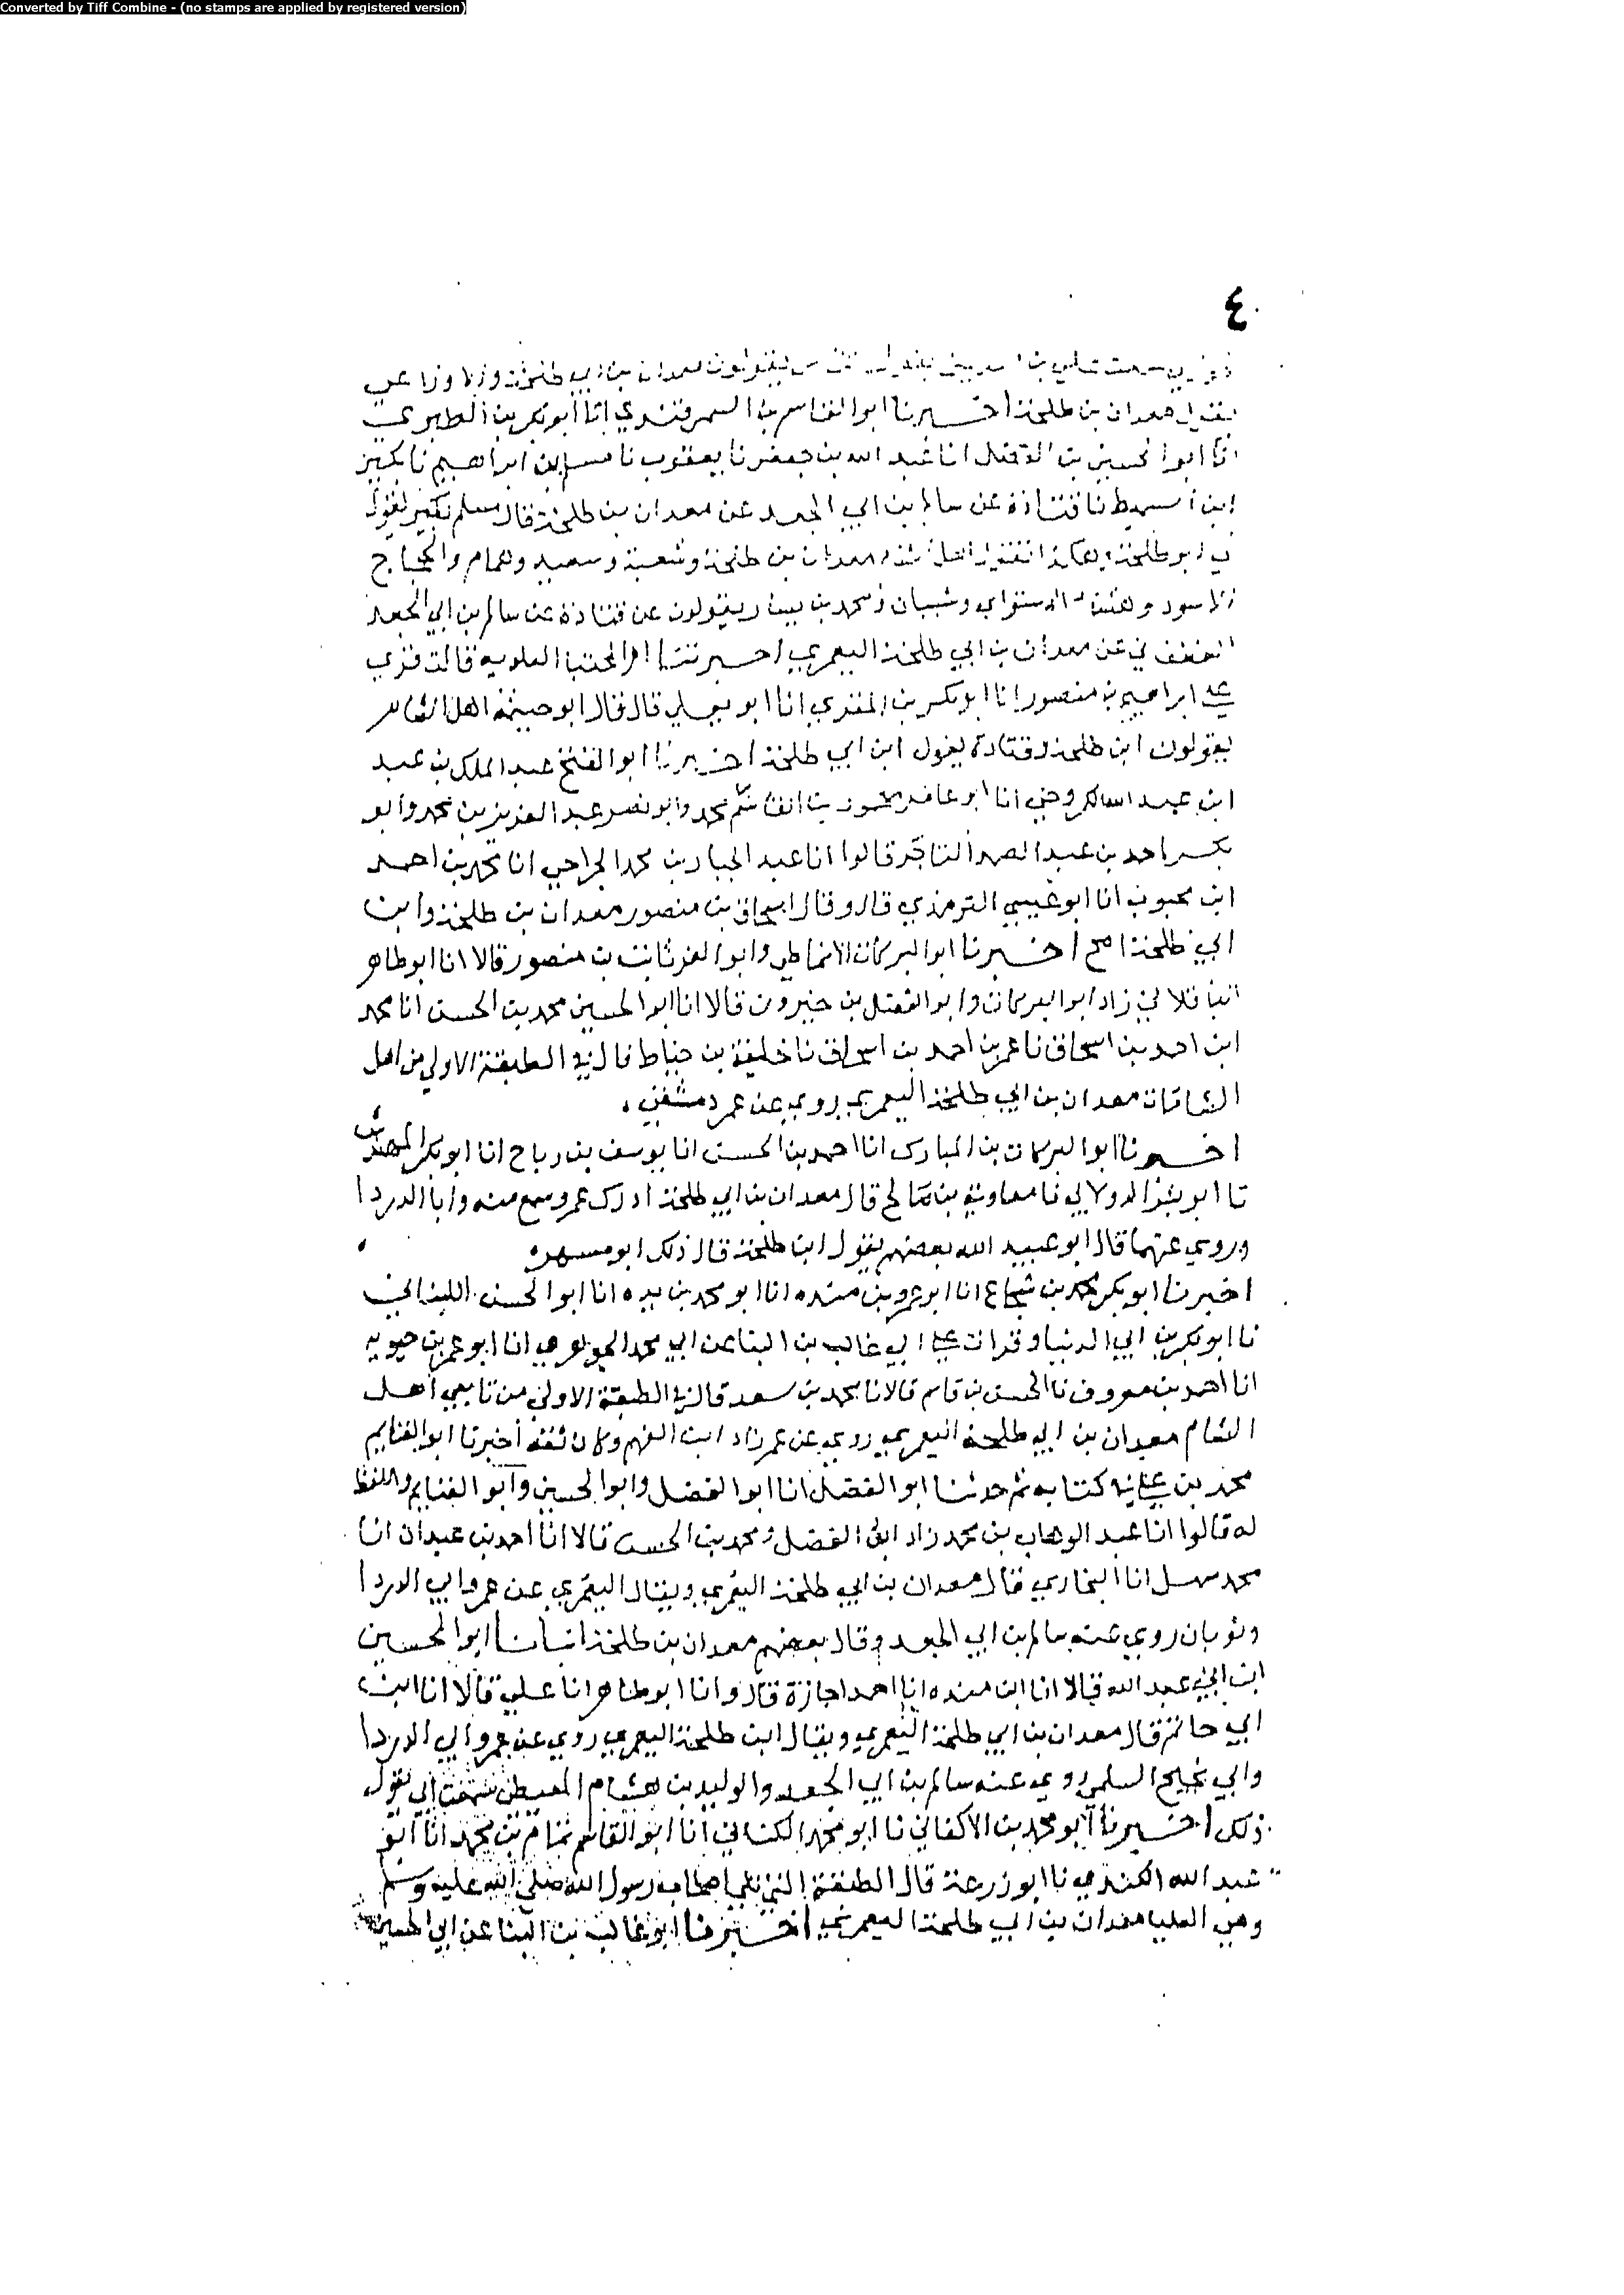 Converted by Tiff Combine - (no stamps are applied by registered version)
٤
يقولون معدان بن ابي طلحة والاوزاعي
يقول معدان بن طلحة اخبرنا ابوا القاسم بن السمرقندي انا ابو بكر بن الطبري
انا ابوا لحسين بن الفضل انا عبد الله بن جعفر نا يعقوب نا مسلم بن ابراهيم نا بكير
ابن ا سميط نا قتادة عن سالم بن ابي الجعد عن معدان بن طلحة قال مسلم بكير يقول
ابو طلحة معدان بن طلحة وشعبة وسعيد وهمام والحجاج
الاسود وهشام الدستواي وشيبان ومحمد بن بيسار يقولون عن قتادة عن سالم بن ابي الجعد
عن معدان بن ابي طلحة اليعمري اخبرتنا ام المجتبا العلوية قالت قري
على ابراهيم بن منصور انا ابو بكر بن المقري انا ابو يعلى قال قال ابو خيثمة اهل الشام
يقولون ابن طلحة وقتادة يقول ابن ابي طلحة اخبرنا ابوا لفتح عبد الملك بن عبد
ابن عبد الله الكروخي انا ابو عامر محمود بن القاسم محمد وابو نصر عبد العزيز بن محمد وابو
بكر احمد بن عبد الصمد التاجر قالوا انا عبد الجبار بن محمد الجراحي انا محمد بن احمد
ابن محبوب انا ابو عيسي الترمذي قال وقال اسحاق بن منصور معدان بن طلحة وابن
ابي طلحة اصح اخبرنا ابوا البركات الانماطي وابوا العز ثابت بن منصور قالا انا ابو طاهر
الباقلاني زاد ابوا البركات وابوا الفضل بن خيرون قالا انا ابوا لحسين محمد بن الحسن انا محمد
ابن احمد بن اسحاق نا عمر بن احمد بن اسحاق نا خليفة بن خياط قال في الطبقة الاولي من اهل
الشامات معدان بن ابي طلحة اليعمري روي عن عمر دمشقي
اخبرنا ابوا البركات بن المبارك انا احمد بن الحسن انا يوسف بن رباح انا ابو بكر المهندس
نا ابو بشر الدولابي نا معاوية بن صالح قال معدان بن ابي طلحة ادرك عمر وسمع منه وابا الدردا
وروي عنهما قال ابو عبيد الله بعضهم يقول ابن طلحة قال ذلك ابو مسهر
اخبرنا ابو بكر محمد بن شجاع انا ابو عمرو بن منده انا ابو محمد بن يوه انا ابوا لحسن اللبناني
نا ابو بكر بن ابي الدنيا وقرات على ابي غالب بن البنا عن ابي محمد الجوهري انا ابو عمر بن حيويه
انا احمد بن معروف نا الحسن بن قاسم قالا نا محمد بن سعد قال في الطبقة الاولي من تابعي اهل
الشام معدان بن ابي طلحة اليعمري روي عن عمر زاد ابن الفهم وكان ثقة اخبرنا ابو الغنايم
محمد بن علي في كتابه ثم حدثنا ابو الفضل انا ابوا لفضل وابوا لحسين وابو الغنايم واللفظ
له قالوا انا عبد الوهاب بن محمد زاد ابو الفضل ومحمد بن الحسن قالا انا احمد بن عبدان انا
محمد سهل انا البخاري قال معدان بن ابي طلحة اليعمري ويقال اليعمري عن عمر وابي الدردا
وثوبان روي عنه سالم بن ابي الجعد وقال بعضهم معدان بن طلحة انبانا ابوا لحسين
ابن ابي عبد الله قالا انا ابن منده انا احمد اجازة قال وانا ابو طاهر انا علي قالا انا ابن
ابي حاتم قال معدان بن ابي طلحة اليعمري ويقال ابن طلحة اليعمري روي عن عمر وابي الدردا
وابي نجيح السلمي روي عنه سالم بن ابي الجعد والوليد بن هشام المعيطي سمعت ابي يقول
ذلك اخبرنا ابو محمد بن الاكفاني نا ابو محمد الكتاني انا ابو القاسم تمام بن محمد انا ابو
عبد الله الكندي نا ابو زرعة قال الطبقة التي تلي اصحاب رسول الله صلى الله عليه وسلم
وهي العليا معدان بن ابي طلحة اليعمري اخبرنا ابو غالب بن البنا عن ابي الحسين